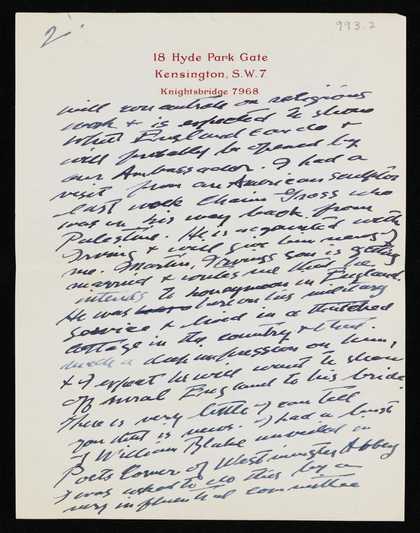 2
993.2
18 Hyde Park Gate
Kensington, S.W.7
Knightsbridge 7968
will concentrate on religious
work & is expected to show
what England can do &
will probably be opened by
our Ambassador. I had a
visit from an American sculptor
last week Chaim Gross who
was on his way back from
Palestine. He is acquainted with
Irving & will give him news of
me. Martin, Irvings son is getting
married & writes me that he
intends to honeymoon in England.
He was here on his military
service & lived in a thatched
cottage in the country & that
made a deep impression on him,
& I expect he will want to show
off rural England to his bride.
There is very little I can tell
you that is news. I had a bust
of William Blake unveiled in
Poets Corner of Westminster Abbey
I was asked to do this by a
very influential committee